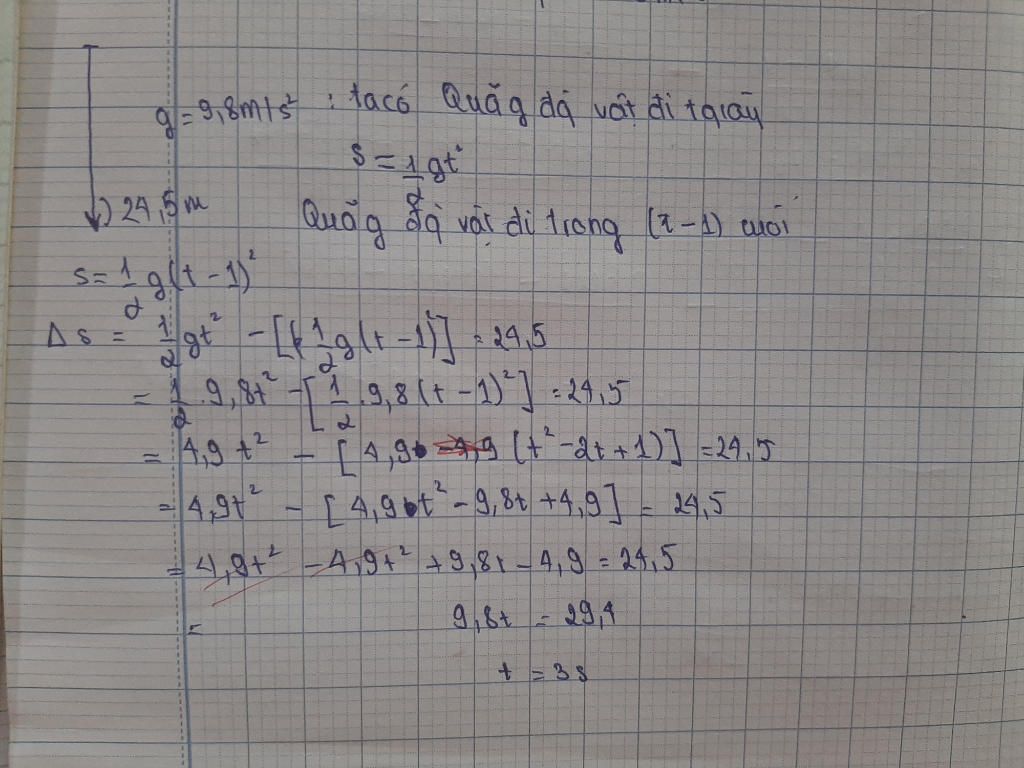 g = 9,8m/s² : ta có Quãg đg vật đi t giây
s = 1/2 gt²
24,5m
Quãg đg vật đi trong (t-1) cuối
s = 1/2 g(t-1)²
Δs = 1/2 gt² - [(1/2 g(t-1)²)] = 24,5
= 1/2 . 9,8t² - [1/2 . 9,8(t-1)²] = 24,5
= 4,9t² - [4,9 (t²-2t+1)] = 24,5
= 4,9t² - [4,9t² - 9,8t + 4,9] = 24,5
= 4,9t² - 4,9t² + 9,8t - 4,9 = 24,5
= 9,8t = 29,4
t = 3s